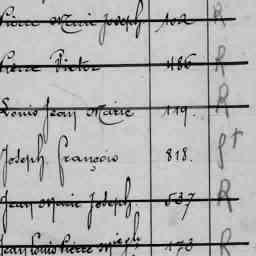 Pierre Marie Joseph 102 R
Pierre Victor 486 R
Louis Jean Marie 119. R
Joseph François 818.
Jean Marie Joseph. 537 R
Jean Louis Pierre Migh 173 R